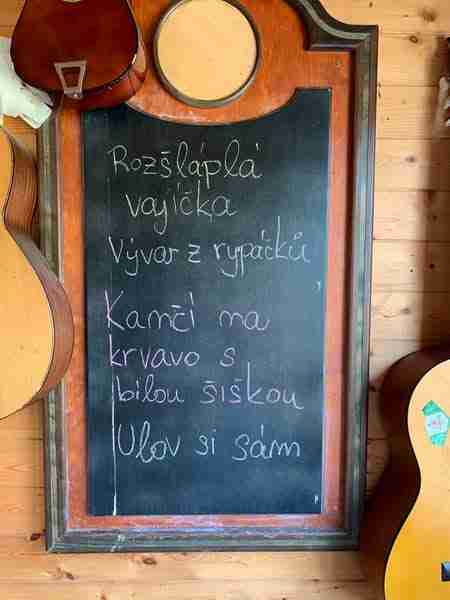 Rozšláplá
vajíčka
Vývar z rypáčků
Kamčí na
krvavo s
bílou šiškou
Ulov si sám